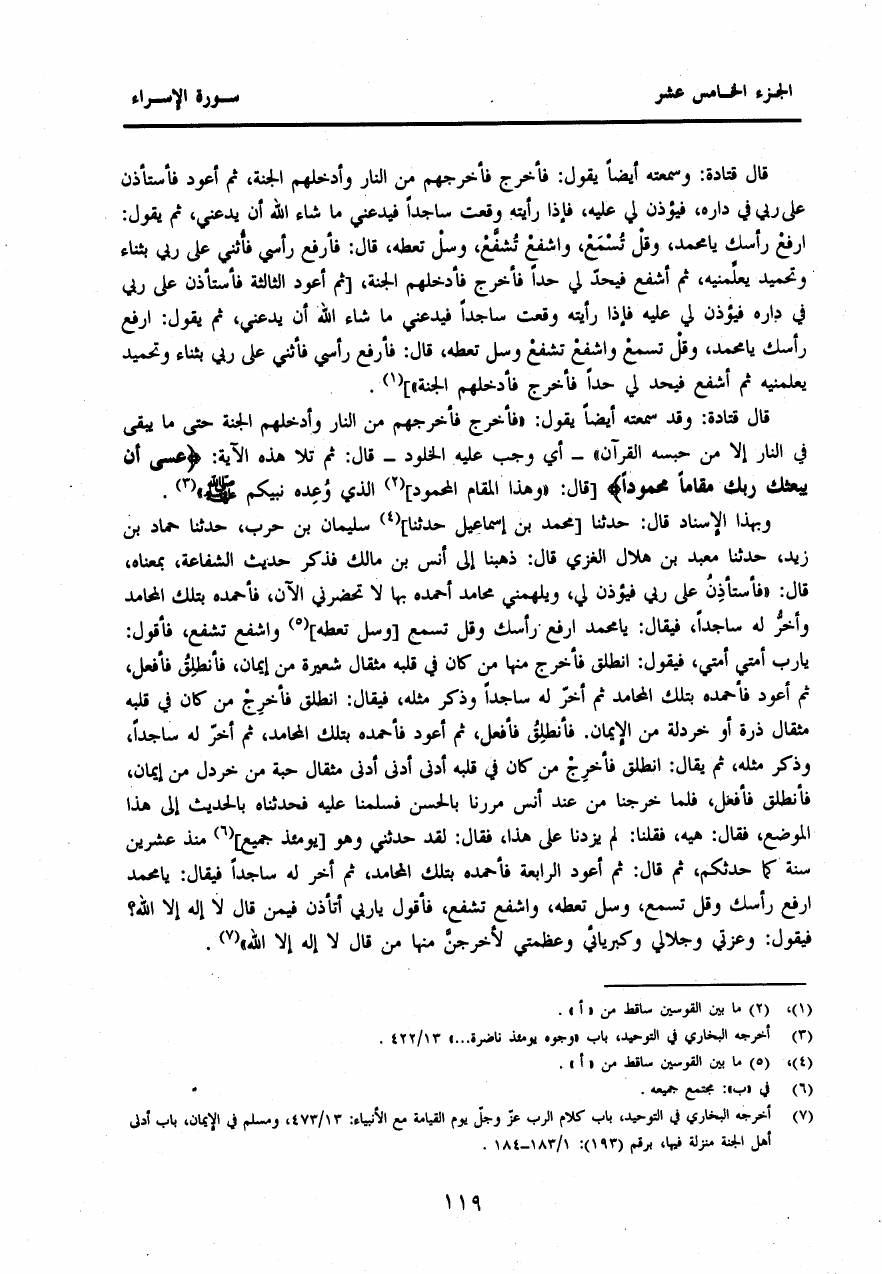 الجزء الخامس عشر
سورة الإسراء
قال قتادة: وسمعته أيضاً يقول: فأخرج فأخرجهم من النار وأدخلهم الجنة، ثم أعود فأستأذن
على ربي في داره، فيؤذن لي عليه، فإذا رأيته وقعت ساجداً فيدعني ما شاء الله أن يدعني، ثم يقول:
ارفعْ رأسك يامحمد، وقلْ تُسْمَعْ، واشفعْ تُشفَّعْ، وسلْ تعطه، قال: فأرفع رأسي فأُثني على ربي بثناء
وتحميد يعلّمنيه، ثم أشفع فيحدّ لي حداً فأخرج فأدخلهم الجنة، [ثم أعود الثالثة فأستأذن على ربي
في داره فيؤذن لي عليه فإذا رأيته وقعت ساجداً فيدعني ما شاء الله أن يدعني، ثم يقول: ارفع
رأسك يامحمد، وقلْ تسمعْ واشفعْ تشفعْ وسل تعطه، قال: فأرفع رأسي فأثني على ربي بثناء وتحميد
يعلمنيه ثم أشفع فيحد لي حداً فأخرج فأدخلهم الجنة»](١) .
قال قتادة: وقد سمعته أيضاً يقول: «فأخرج فأخرجهم من النار وأدخلهم الجنة حتى ما يبقى
في النار إلا من حبسه القرآن» ــ أي وجب عليه الخلود ــ قال: ثم تلا هذه الآية: ﴿عسى أن
يبعثك ربك مقاماً محموداً﴾ [قال: «وهذا المقام المحمود](٢) الذي وُعِده نبيكم ﷺ»(٣) .
وبهذا الإسناد قال: حدثنا [محمد بن إسماعيل حدثنا](٤) سليمان بن حرب، حدثنا حماد بن
زيد، حدثنا معبد بن هلال الغزي قال: ذهبنا إلى أنس بن مالك فذكر حديث الشفاعة، بمعناه،
قال: «فأستأذِنُ على ربي فيؤذن لي، ويلهمني محامد أحمده بها لا تحضرني الآن، فأحمده بتلك المحامد
وأخرُّ له ساجداً، فيقال: يامحمد ارفع رأسك وقل تسمع [وسل تعطه](٥) واشفع تشفع، فأقول:
يارب أمتي أمتي، فيقول: انطلق فأخرج منها من كان في قلبه مثقال شعيرة من إيمان، فأنطلِقُ فأفعل،
ثم أعود فأحمده بتلك المحامد ثم أخرّ له ساجداً وذكر مثله، فيقال: انطلق فأخرِجْ من كان في قلبه
مثقال ذرة أو خردلة من الإيمان. فأنطلِقُ فأفعل، ثم أعود فأحمده بتلك المحامد، ثم أخرّ له ساجداً،
وذكر مثله، ثم يقال: انطلق فأخرِجْ من كان في قلبه أدنى أدنى أدنى مثقال حبة من خردل من إيمان،
فأنطلق فأفعل، فلما خرجنا من عند أنس مررنا بالحسن فسلمنا عليه فحدثناه بالحديث إلى هذا
الموضع، فقال: هيه، فقلنا: لم يزدنا على هذا، فقال: لقد حدثني وهو [يومئذ جميع](٦) منذ عشرين
سنة كما حدثكم، ثم قال: ثم أعود الرابعة فأحمده بتلك المحامد، ثم أخر له ساجداً فيقال: يامحمد
ارفع رأسك وقل تسمع، وسل تعطه، واشفع تشفع، فأقول ياربي أتأذن فيمن قال لا إله إلا الله؟
فيقول: وعزتي وجلالي وكبريائي وعظمتي لأخرجنَّ منها من قال لا إله إلا الله»(٧) .
(١)، (٢) ما بين القوسين ساقط من «أ» .
(٣) أخرجه البخاري في التوحيد، باب «وجوه يومئذ ناضرة...» ٤٢٢/١٣ .
(٤)، (٥) ما بين القوسين ساقط من «أ» .
(٦) في «ب»: مجتمع جميعه .
(٧) أخرجه البخاري في التوحيد، باب كلام الرب عزّ وجلّ يوم القيامة مع الأنبياء: ٤٧٣/١٣، ومسلم في الإيمان، باب أدنى
أهل الجنة منزلة فيها، برقم (١٩٣): ١٨٣/١ــ١٨٤ .
١١٩